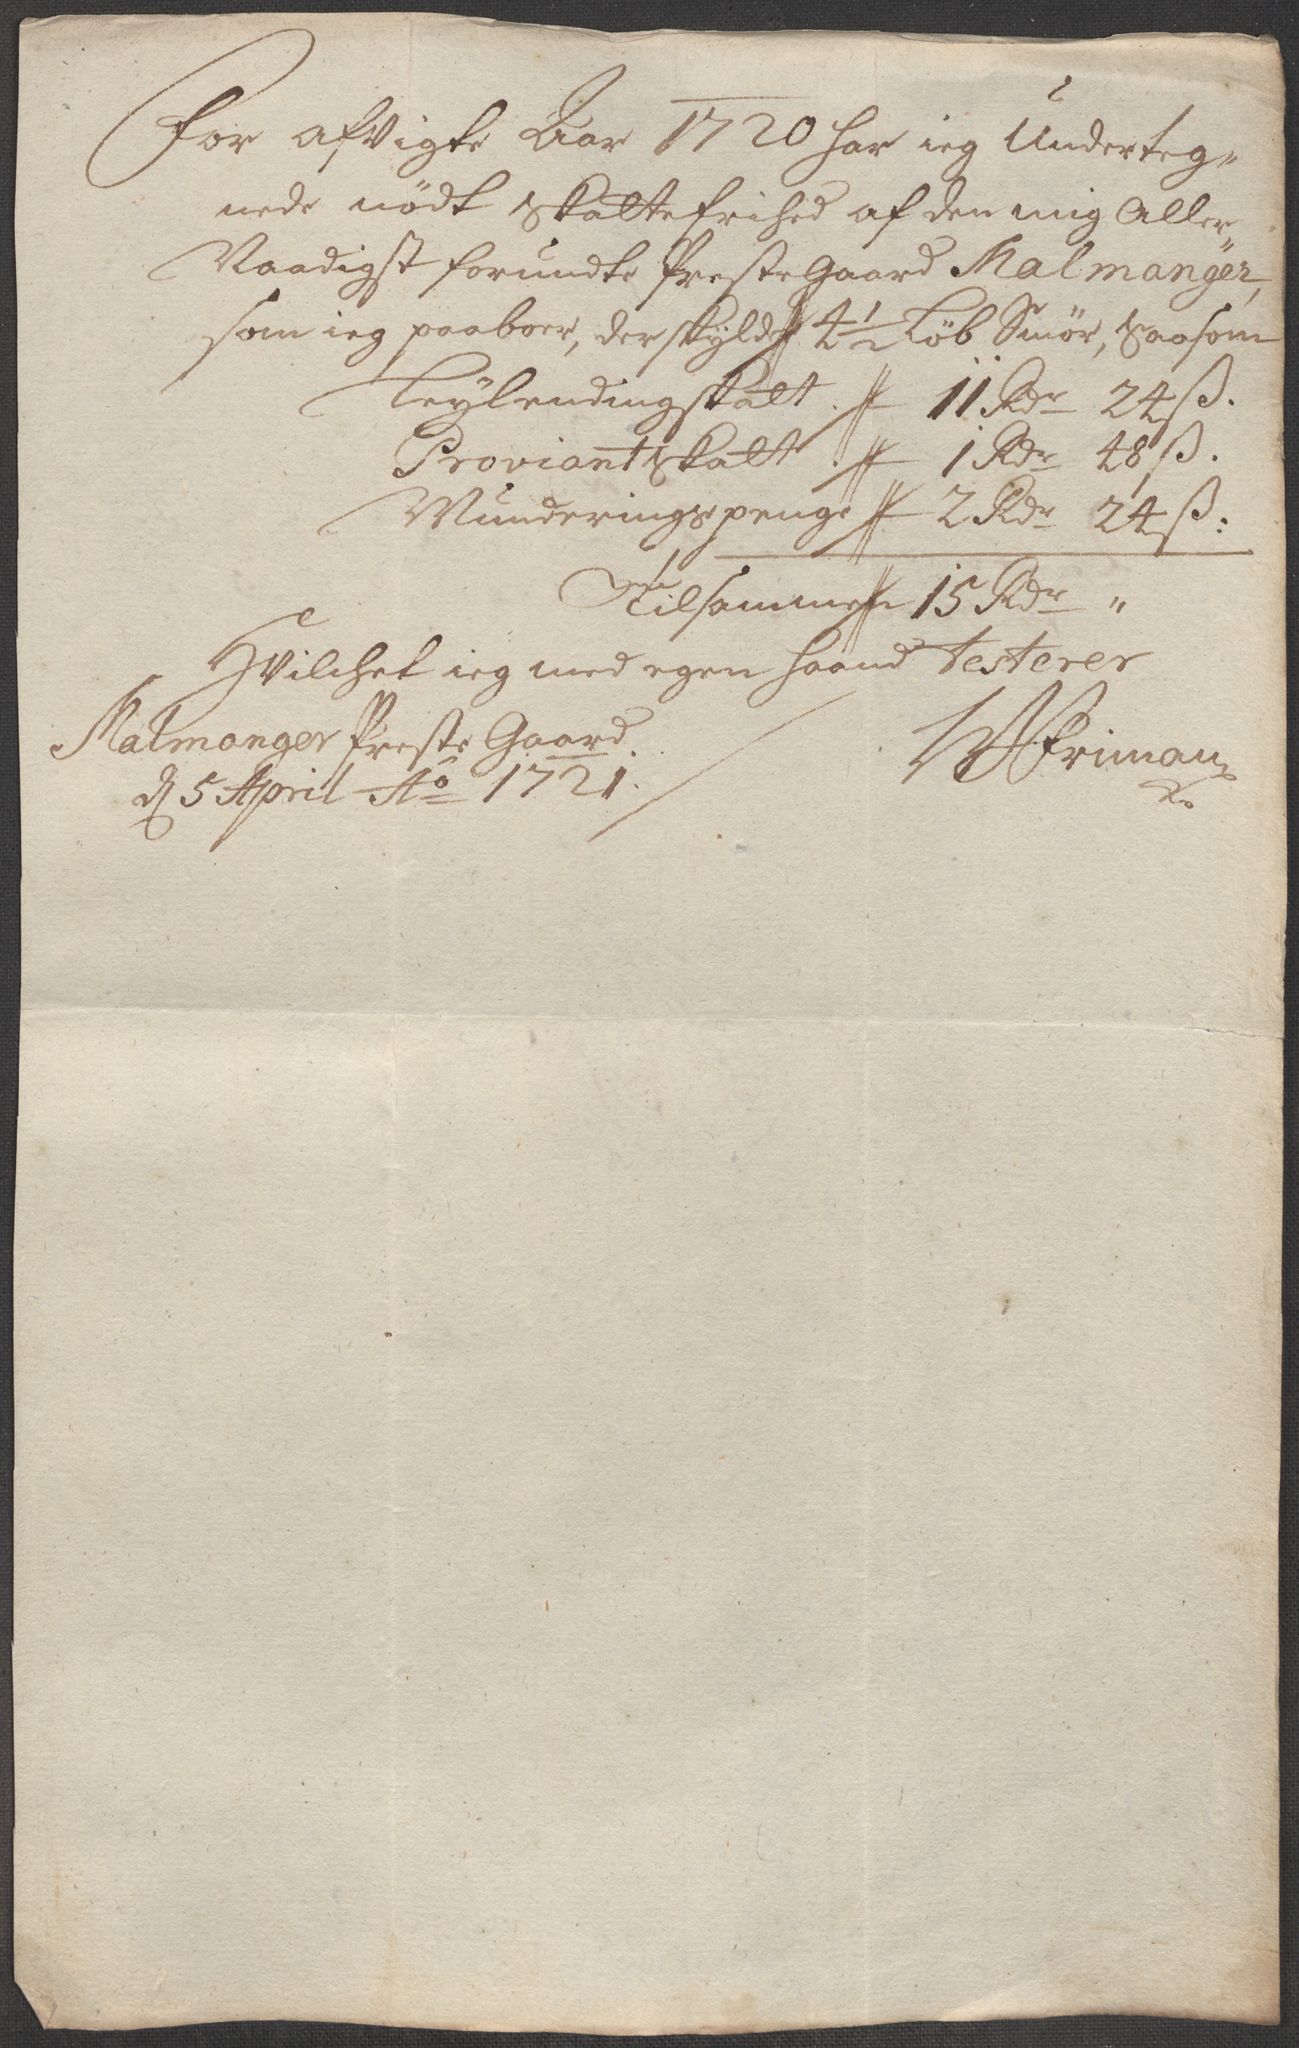 For afvigte Aar 1720 har ieg Underteg„
nede nödt skattefrihed af den mig Aller„
Naadigst forundte Præste Gaard Malmanger,
som ieg paaboer, der skylder 4½ Löb Smör, saasom
Leylendingskatt. 11 Rdr 24 ß.
Proviantskatt. 1 Rdr 48 ß.
Munderingspenge 2 Rdr 24 ß:
Tilsammen 15 Rdr „
Hvilchet ieg med egen haand Testerer
Malmanger Præste Gaard
d 5 April Ao 1721.
Friman